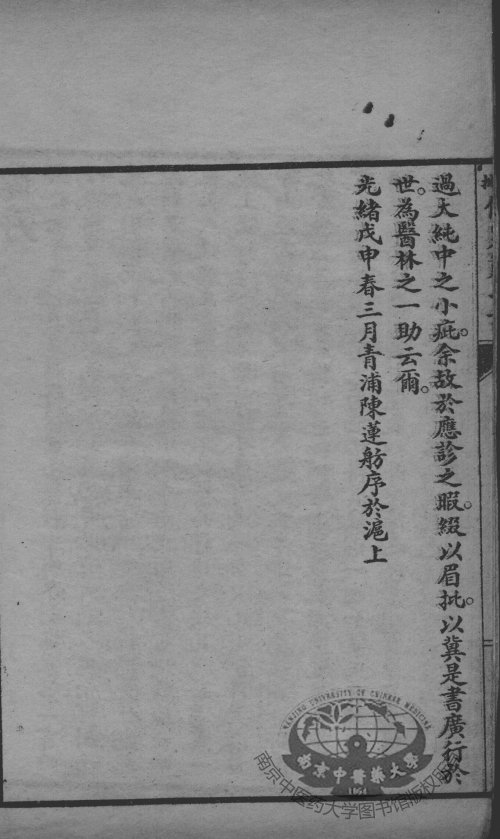 過大純中之小疵。余故於應診之暇。綴以眉批。以冀是書廣行於
世。為醫林之一助云爾。
光緒戊申春三月青浦陳蓮舫序於滬上
NANJING UNIVERSITY OF CHINESE MEDICINE
南京中醫藥大學
1954
南京中医药大学图书馆版权所